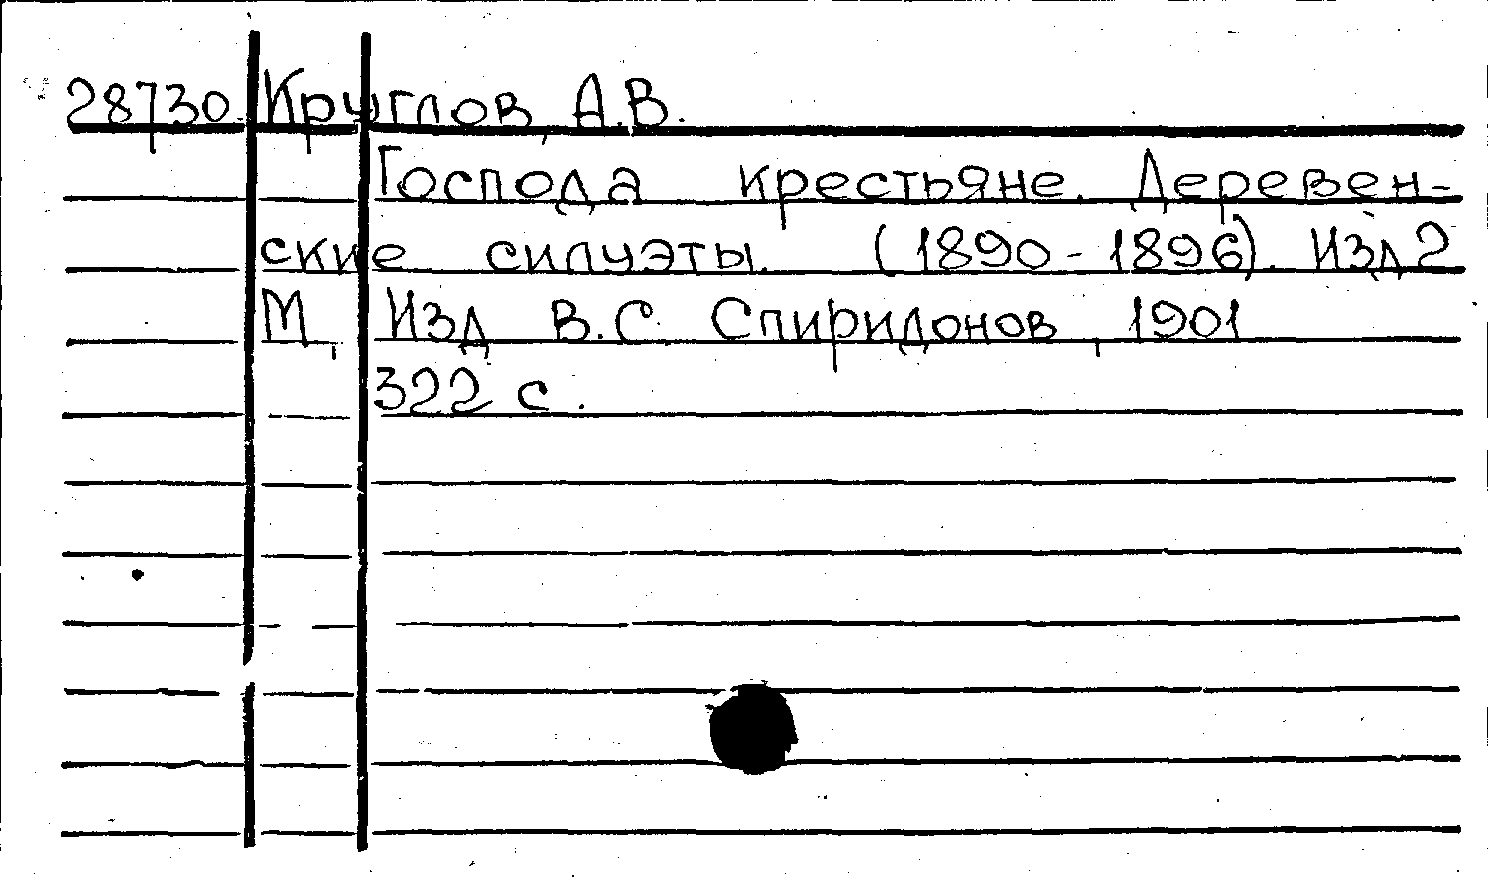 28730. Круглов, А.В.
Господа крестьяне. Деревен-
ские силуэты. (1890-1896). Изд 2
М, Изд В.С. Спиридонов, 1901
322 с.